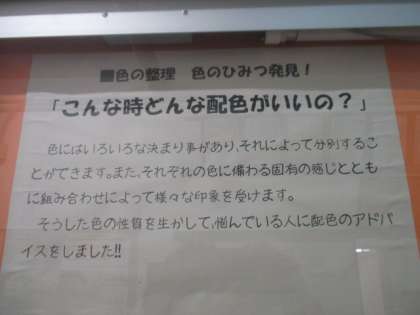 ■色の整理　色のひみつ発見！
「こんな時どんな配色がいいの？」
色にはいろいろな決まり事があり、それによって分別するこ
とができます。また、それぞれの色に備わる固有の感じととも
に組み合わせによって様々な印象を受けます。
そうした色の性質を生かして、悩んでいる人に配色のアドバ
イスをしました!!